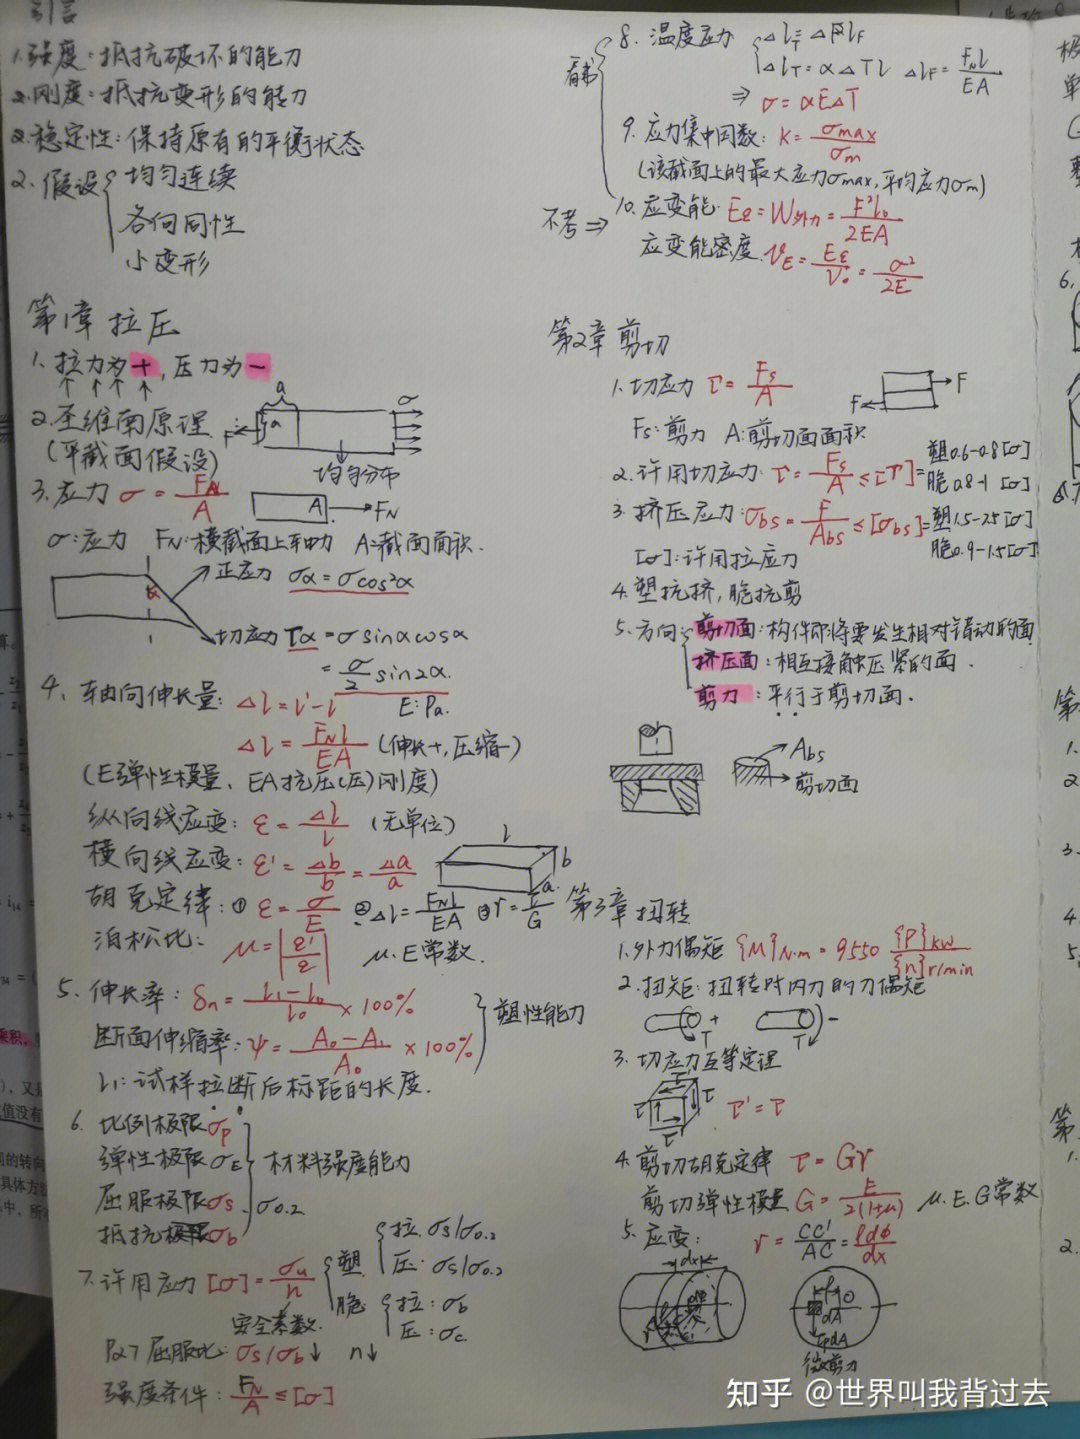 引言
1.强度:抵抗破坏的能力
2.刚度:抵抗变形的能力
2.稳定性:保持原有的平衡状态
2.假设
均匀连续
各向同性
小变形
第1章 拉压
1.拉力为+,压力为-
2.圣维南原理
(平截面假设)
F
a
a
σ
均匀分布
3.应力 σ=FN/A
A
FN
σ:应力 FN:横截面上轴力 A:截面面积.
α
正应力 σα=σcos²α
切应力 τα=σsinαcosα
=σ/2 sin2α.
4、轴向伸长量: Δl=l'-l E:Pa.
Δl=FNl/EA (伸长+,压缩-)
(E弹性模量、EA抗压(压)刚度)
纵向线应变: ε=Δl/l (无单位)
横向线应变: ε'=Δb/b=Δa/a
l
b
a
胡克定律:① ε=σ/E ②Δl=FNl/EA ③γ=τ/G
泊松比: μ=|ε'/ε| μ.E常数.
5.伸长率: δn=l₁-l₀/l₀ ×100%
断面伸缩率:ψ=A₀-A₁/A₀ ×100%
塑性能力
l₁:试样拉断后标距的长度.
6.比例极限σp
弹性极限σE
屈服极限σs.σ0.2
抵抗极限σb
材料强度能力
7.许用应力[σ]=σu/n
安全系数.
塑
拉:σs/σ0.2
压:σs/σ0.2
脆
拉:σb
压:σc
P27 屈服比:σs/σb↓ n↓
强度条件:FN/A≤[σ]
看书
8.温度应力
ΔlT=ΔlF
ΔlT=αΔTl ΔlF=FNl/EA
⇒ σ=αEΔT
9.应力集中因数:K=σmax/σm
(该截面上的最大应力σmax,平均应力σm)
不考⇒
10.应变能:Eε=W外力=F²l₀/2EA
应变能密度.νE=Eε/V₀=σ²/2E
第2章 剪切
1.切应力 τ=Fs/A
F
F
Fs:剪力 A:剪切面面积
2.许用切应力:τ=Fs/A≤[τ]=塑0.6-0.8[σ]
脆0.8-1[σ]
3.挤压应力:σbs=F/Abs≤[σbs]=塑1.5-2.5[σ]
脆0.9-1.5[σ]
[σ]:许用拉应力
4.塑抗挤,脆抗剪
5.方向:剪切面:构件即将要发生相对错动的面
挤压面:相互接触压紧的面.
剪力:平行于剪切面.
Abs
剪切面
第3章扭转
1.外力偶矩{M}N.m=9550 {P}kw/{n}r/min
2.扭矩:扭转时内力的力偶矩
T
+
T
-
3.切应力互等定理
τ
τ
τ
τ
τ'=τ
4.剪切胡克定律 τ=Gγ
剪切弹性模量G=E/2(1+μ) μ.E.G常数
5.应变: γ=CC'/AC=ρdφ/dx
dx
ρ
O
dA
τρdA
微剪力
知乎 @世界叫我背过去